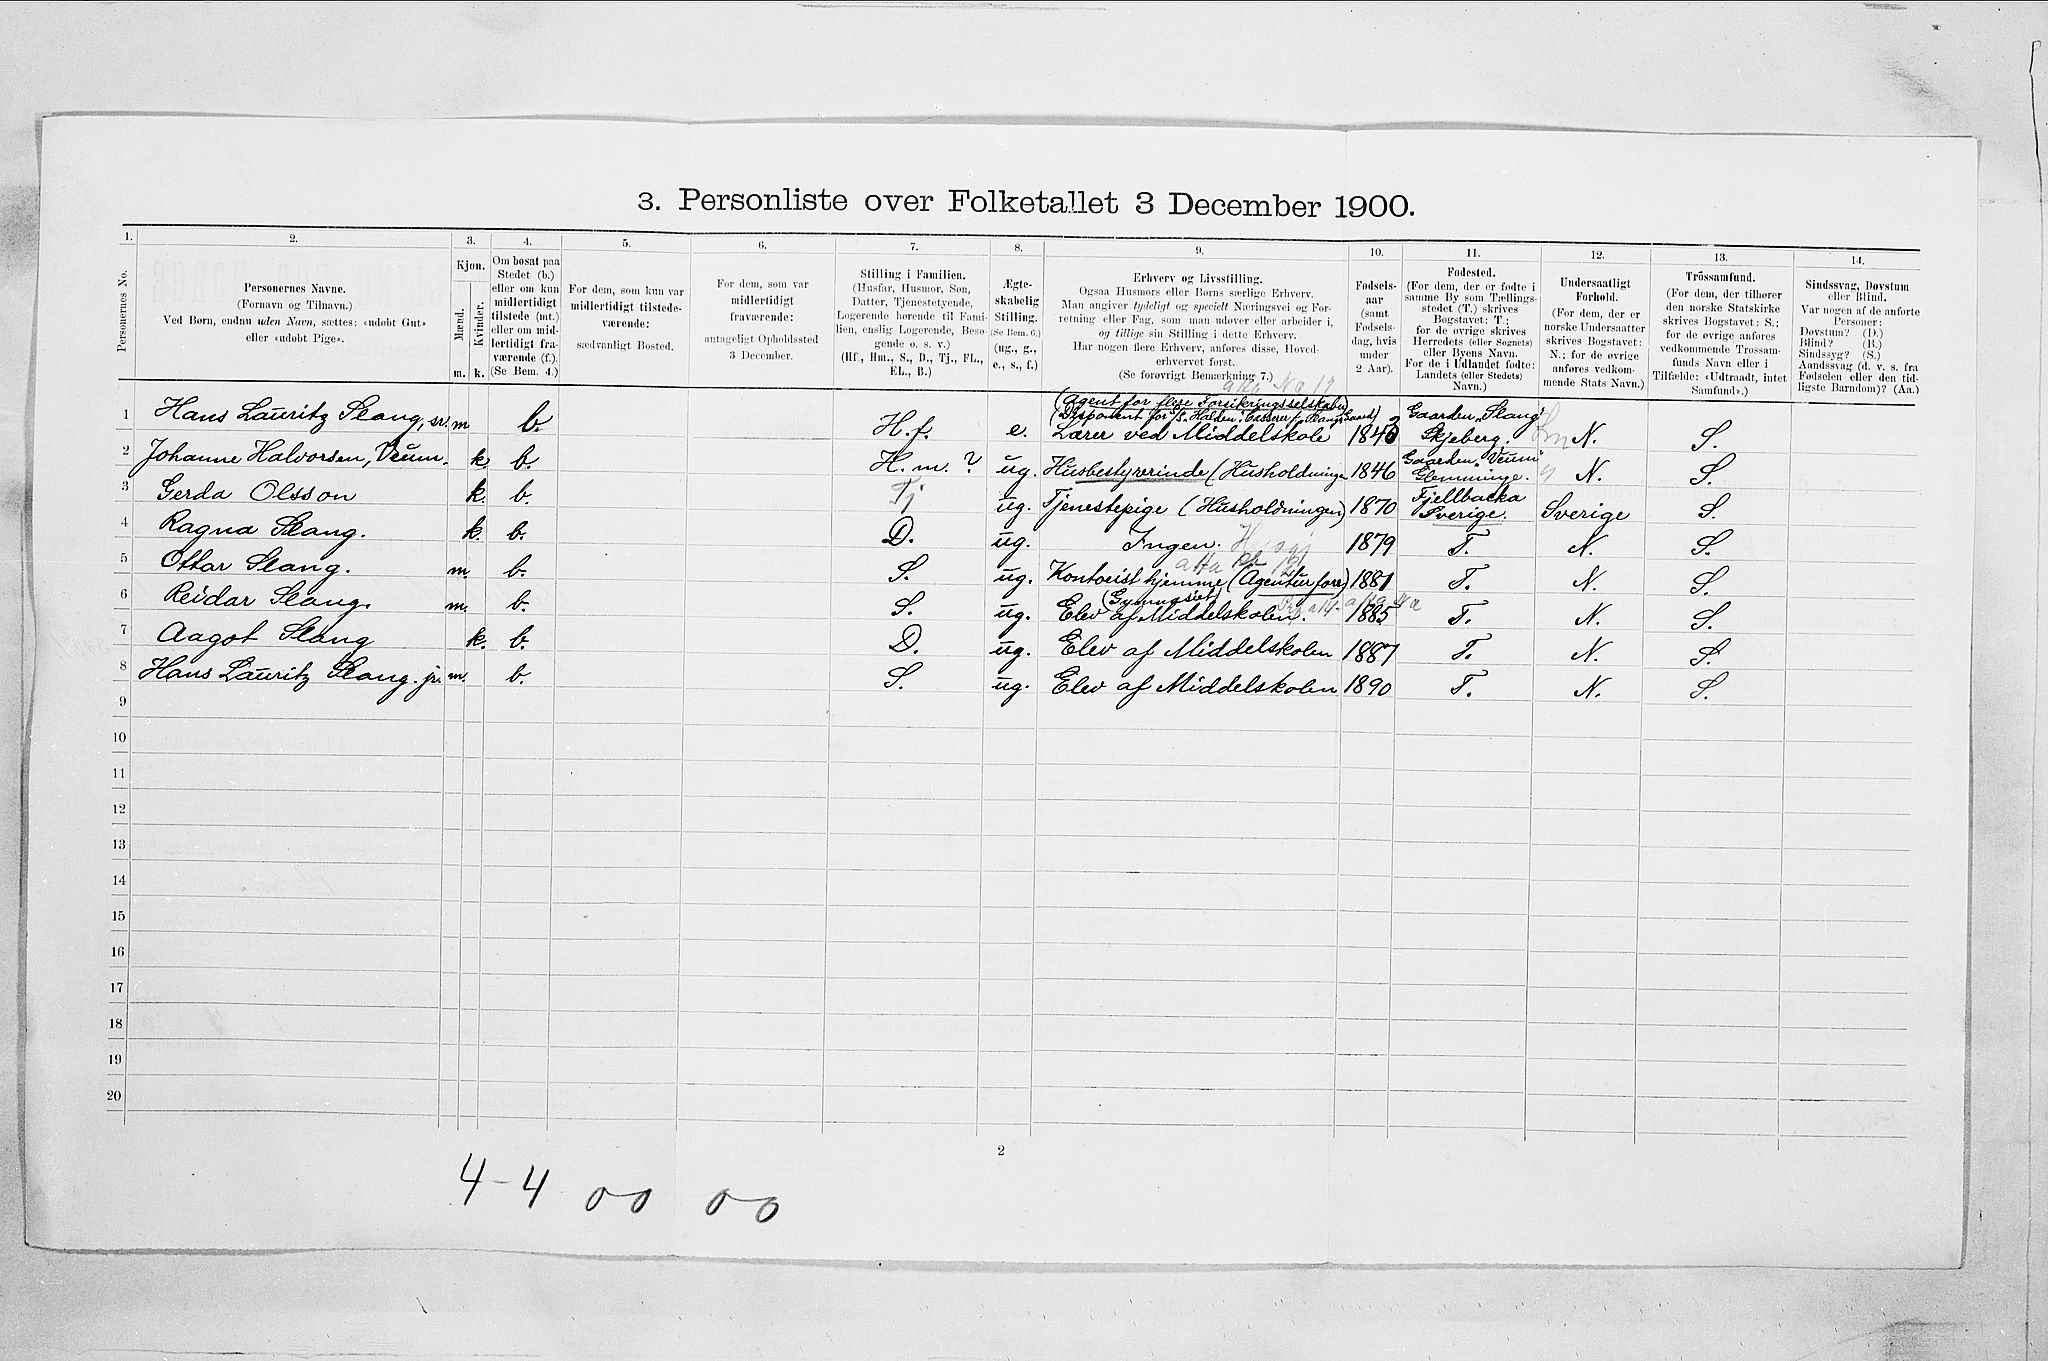 3. Personliste over Folketallet 3 December 1900.
1. 2. 3. 4. 5. 6. 7. 8. 9. 10. 11. 12. 13. 14.
Personernes No.
Personernes Navne.
(Fornavn og Tilnavn.)
Ved Børn, endnu uden Navn, sættes: «udøbt Gut»
eller «udøbt Pige».
Kjøn.
Mænd.
Kvinder.
m. k.
Om bosat paa
Stedet (b.)
eller om kun
midlertidigt
tilstede (mt.)
eller om mid-
lertidigt fra-
værende (f.).
(Se Bem. 4.)
For dem, som kun var
midlertidigt tilstede-
værende:
sædvanligt Bosted.
For dem, som var
midlertidigt
fraværende:
antageligt Opholdssted
3 December.
Stilling i Familien.
(Husfar, Husmor, Søn,
Datter, Tjenestetyende,
Logerende hørende til Fami-
lien, enslig Logerende, Besø-
gende o. s. v.)
(Hf., Hm., S., D., Tj., FL.,
EL., B.)
Ægte-
skabelig
Stilling.
(Se Bem. 6.)
(ug., g.,
e., s., f.)
Erhverv og Livsstilling.
Ogsaa Husmors eller Børns særlige Erhverv.
Man angiver tydeligt og specielt Næringsvei og For-
retning eller Fag, som man udøver eller arbeider i,
og tillige sin Stilling i dette Erhverv.
Har nogen flere Erhverv, anføres disse, Hoved-
erhvervet først.
(Se forøvrigt Bemærkning 7.)
Fødsels-
aar
(samt
Fødsels-
dag, hvis
under
2 Aar).
Fødested.
(For dem, der er fødte i
samme By som Tællings-
stedet (T.) skrives
Bogstavet: T.;
for de øvrige skrives
Herredets (eller Sognets)
eller Byens Navn.
For de i Udlandet fødte:
Landets (eller Stedets)
Navn.)
Undersaatligt
Forhold.
(For dem, der er
norske Undersaatter
skrives Bogstavet:
N.; for de øvrige
anføres vedkom-
mende Stats Navn.)
Trossamfund.
(For dem, der tilhører
den norske Statskirke
skrives Bogstavet: S.;
for de øvrige anføres
vedkommende Trossam-
funds Navn eller i
Tilfælde: «Udtraadt, intet
Samfund».)
Sindssvag, Døvstum
eller Blind.
Var nogen af de anførte
Personer:
Døvstum? (D.)
Blind? (B.)
Sindssyg? (S.)
Aandssvag (d. v. s. fra
Fødselen eller den tid-
ligste Barndom)? (Aa.)
(Agent for flere Forsikringsselskaber)
(Disponent for S/S "Halden". Casserer
1 Hans Lauritz Slang, sr. m b. H.f. e. Lærer ved Middelskole 184 Gaarden "Slang" Skjeberg. N. S.
2 Johanne Halvorsen, Veum. k. b. H.m. ? ug. Husbestyrerinde (Husholdningen 1846 Gaarden "Veum" Glemminge. N. S.
3 Gerda Olsson k. b. Tj ug. Tjenestepige (Husholdningen) 1870 Fjellbacka Sverige. Sverige S.
4 Ragna Slang. k. b. D. ug. Ingen. 1879 T. N. S.
5 Ottar Slang. m. b. S. ug. Kontorist hjemme (Agenturforr) 1881 T. N. S.
6 Reidar Slang. m. b. S. ug. (Gymnasiet) Elev af Middelskolen. 1885 T. N. S.
7 Aagot Slang k. b. D. ug. Elev af Middelskolen 1887 T. N. S.
8 Hans Lauritz Slang. jr. m. b. S. ug. Elev af Middelskolen 1890 T. N. S.
9
10
11
12
13
14
15
16
17
18
19
20
2
4-4 00 00